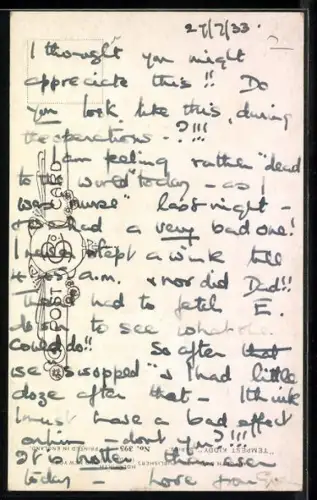 27/7/33.
I thought you might
appreciate this!! Do
you look like this, during
the operations - ?!!!
I am feeling rather "dead
to the world" today - as I
was "nurse" last night -
& had a very bad one!
I never slept a wink till
4 a.m. & nor did Dad!!
Then I had to fetch E.
down to see what she
could do!! So after that
we "swopped" & I had little
doze after that - I think
I must have a bad effect
on him - don't you?!!!
It is hotter than ever
today - Love from
POST CARD
"TEMPEST KIDDY"
No. 395
PRINTED IN ENGLAND